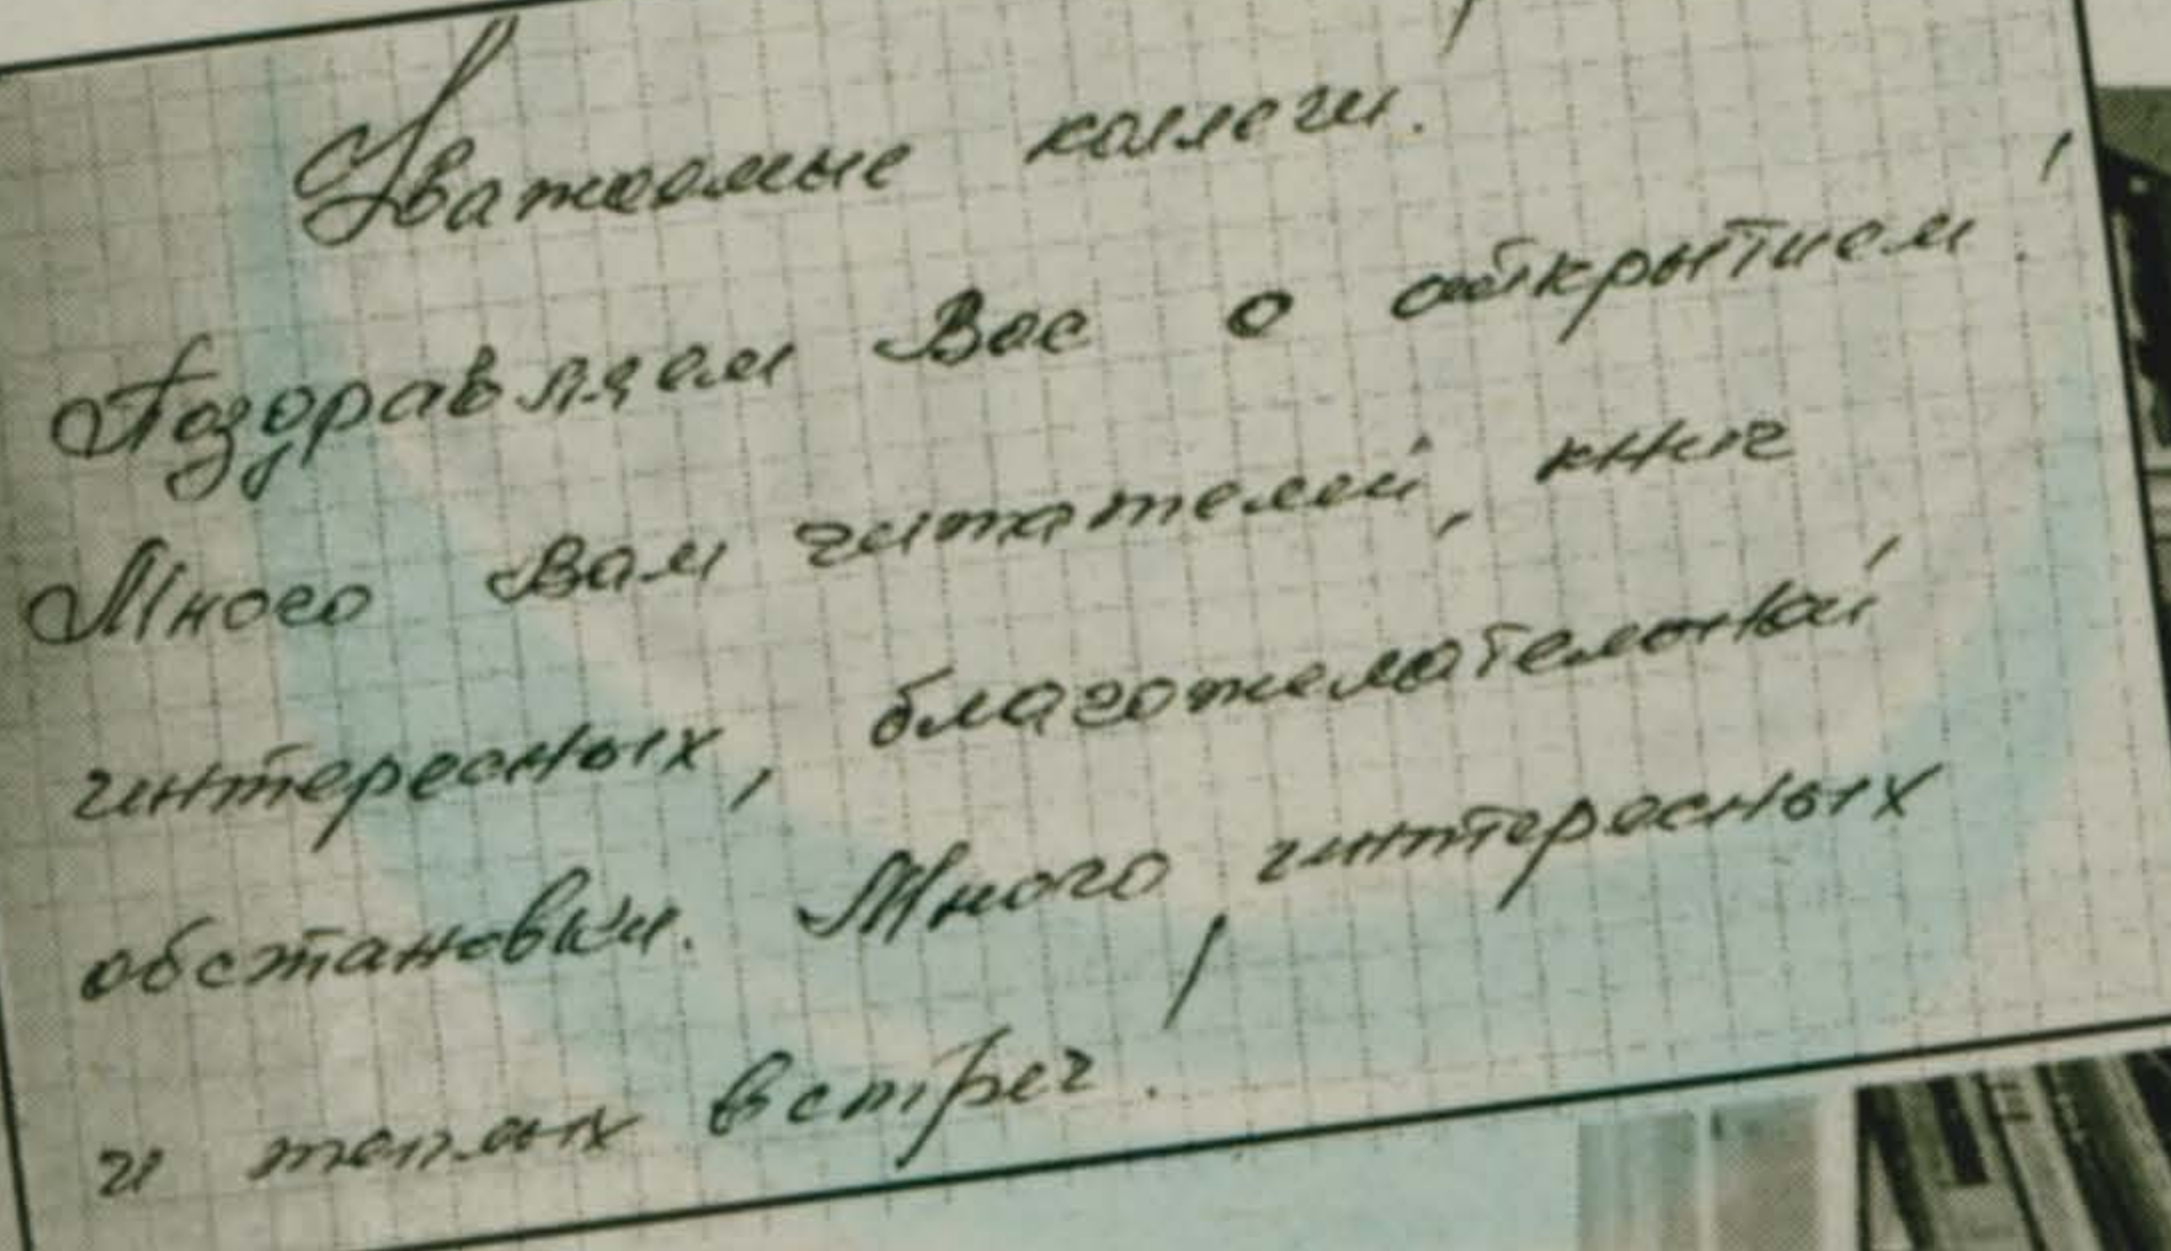 Уважаемые коллеги!
Поздравляем Вас с открытием!
Много Вам читателей, книг
интересных, благожелательной
обстановки. Много интересных
и теплых встреч!